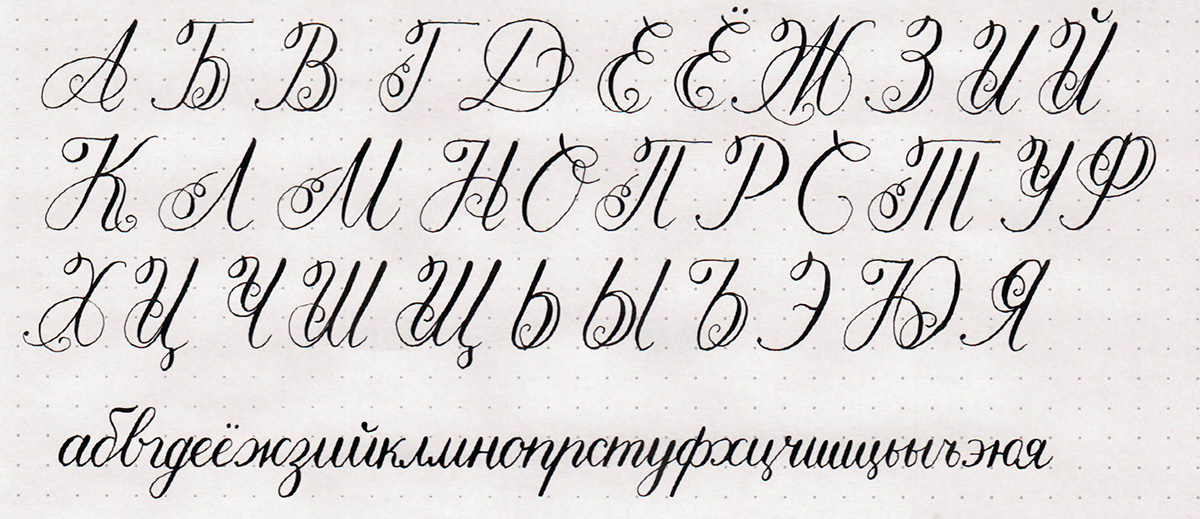 А Б В Г Д Е Ё Ж З И Й
К Л М Н О П Р С Т У Ф
Х Ц Ч Ш Щ Ь Ы Ъ Э Ю Я
абвгдеёжзийклмнопрстуфхцчшщьыъэюя